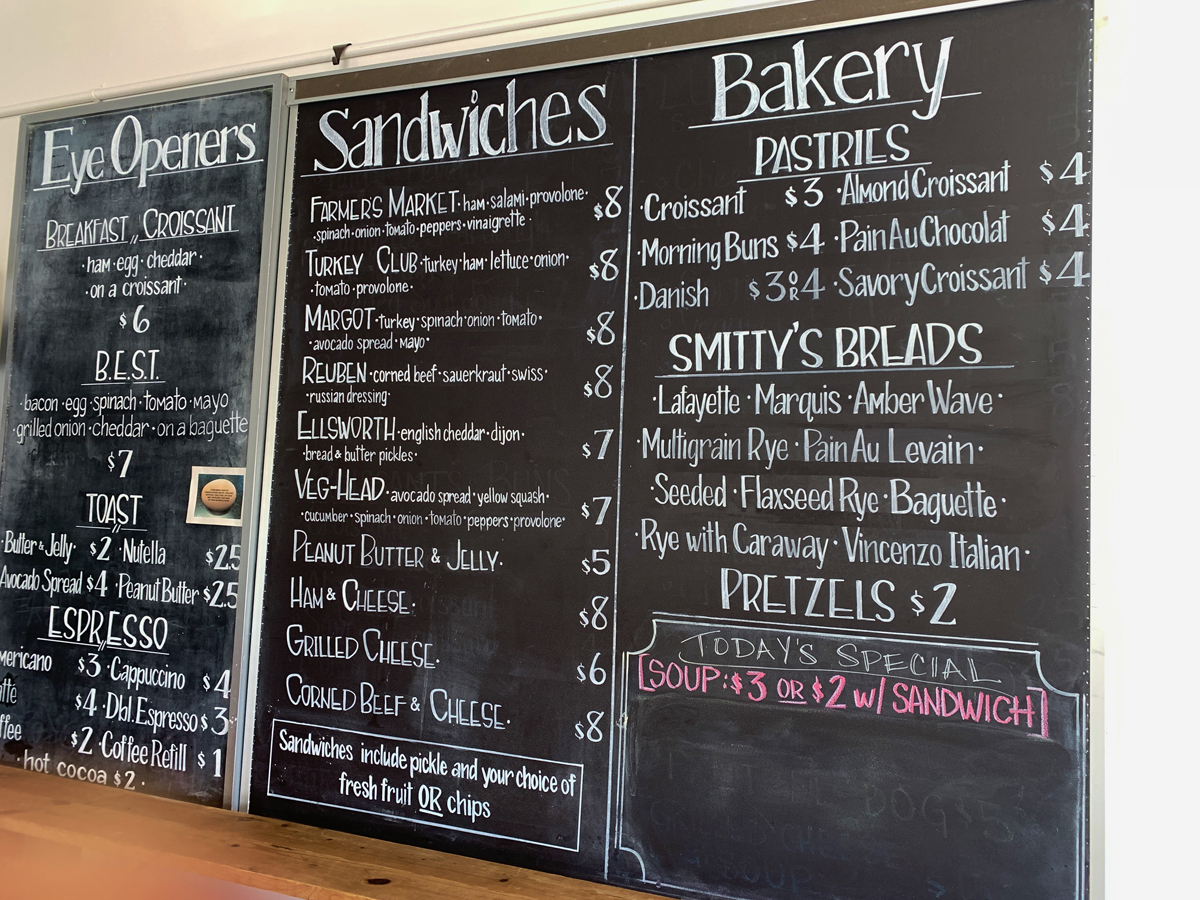 Eye Openers
BREAKFAST CROISSANT
·ham·egg·cheddar·
·on a croissant·
$6
B.E.S.T.
·bacon·egg·spinach·tomato·mayo
·grilled onion·cheddar·on a baguette
$7
TOAST
·Butter & Jelly· $2 ·Nutella $2.5
Avocado Spread $4 ·Peanut Butter $2.5
ESPRESSO
mericano $3 ·Cappuccino $4
$4 ·Dbl. Espresso $3
ffee $2 ·Coffee Refill $1
·hot cocoa $2·
Sandwiches
FARMERS MARKET·ham·salami·provolone· $8
·spinach·onion·tomato·peppers·vinaigrette·
TURKEY CLUB·turkey·ham·lettuce·onion· $8
·tomato·provolone·
MARGOT·turkey·spinach·onion·tomato· $8
·avocado spread·mayo·
REUBEN·corned beef·sauerkraut·swiss· $8
·russian dressing·
ELLSWORTH·english cheddar·dijon· $7
·bread & butter pickles·
VEG-HEAD·avocado spread·yellow squash· $7
·cucumber·spinach·onion·tomato·peppers·provolone·
PEANUT BUTTER & JELLY· $5
HAM & CHEESE· $8
GRILLED CHEESE· $6
CORNED BEEF & CHEESE· $8
Sandwiches include pickle and your choice of
fresh fruit OR chips
Bakery
PASTRIES
·Croissant $3 ·Almond Croissant $4
·Morning Buns $4 ·Pain Au Chocolat $4
·Danish $3 OR 4 ·Savory Croissant $4
SMITTY'S BREADS
·Lafayette·Marquis·Amber Wave·
·Multigrain Rye·Pain Au Levain·
·Seeded·Flaxseed Rye·Baguette·
·Rye with Caraway·Vincenzo Italian·
PRETZELS $2
TODAY'S SPECIAL
[SOUP: $3 OR $2 w/ SANDWICH]